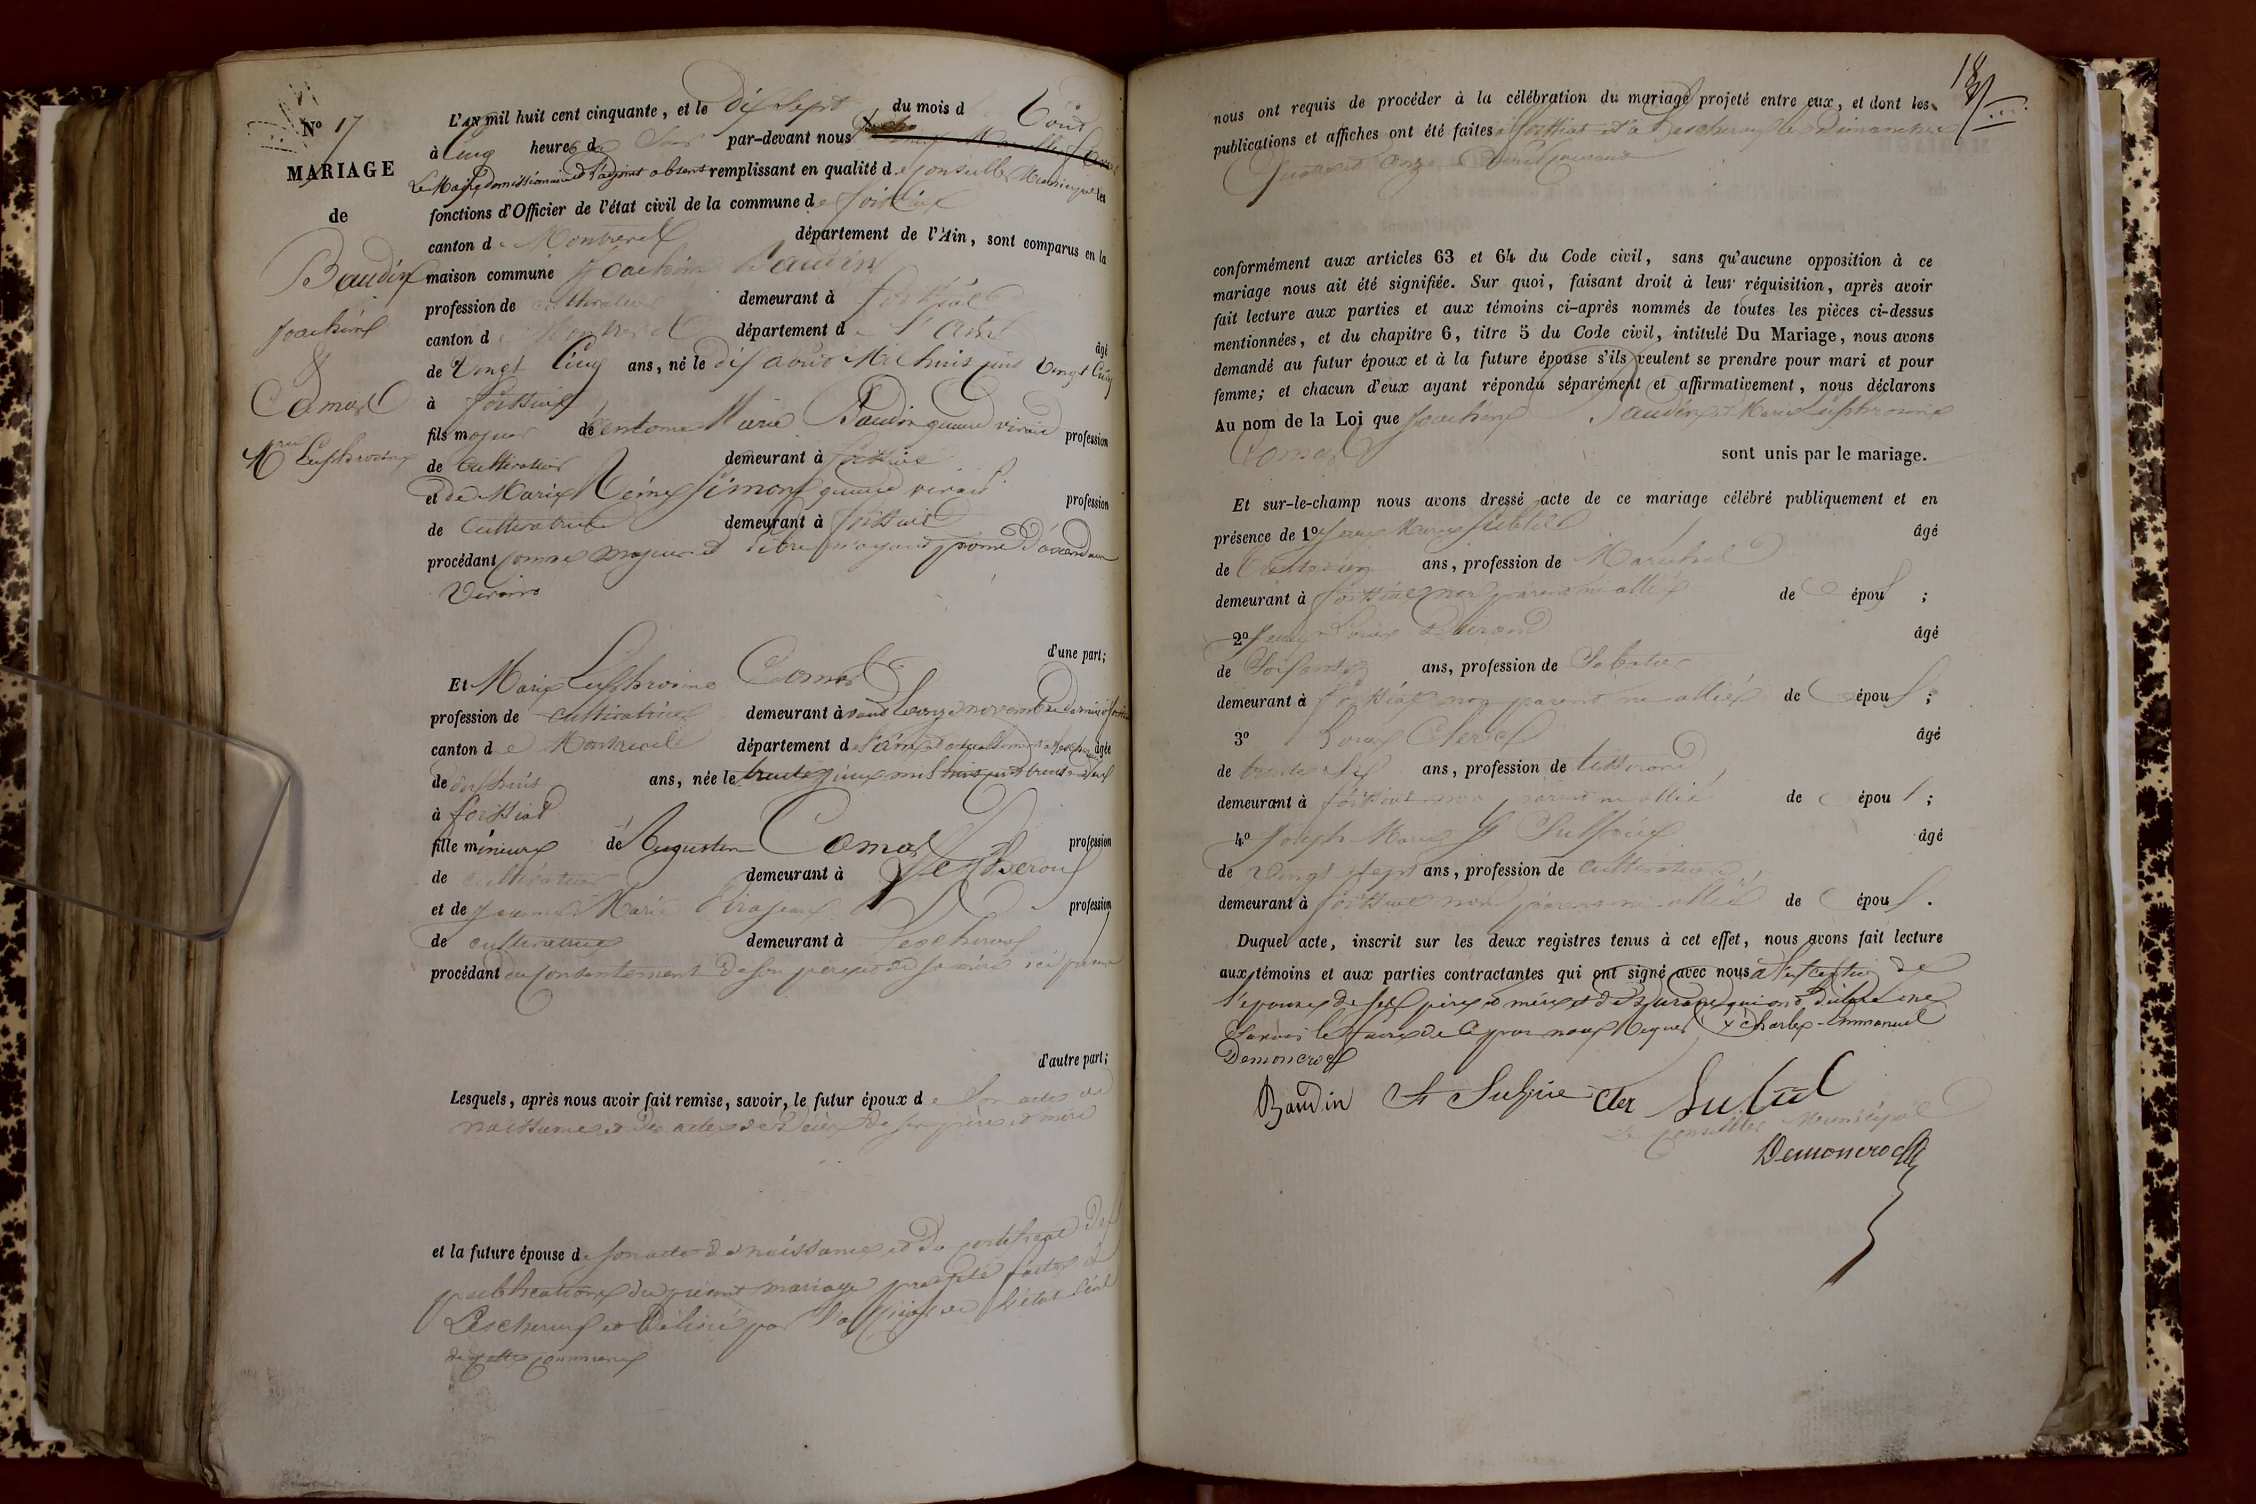 N° 17
MARIAGE
de
Baudin
Joachim
&
Comas
Mie Euphrosine
L'AN mil huit cent cinquante, et le dix Sept du mois d août
à Cinq heures du Soir par-devant nous
Le Maire démissionnaire et l'adjoint absent remplissant en qualité de Conseiller Municipal les
fonctions d'Officier de l'état civil de la commune de foissiat
canton de Montrevel département de l'Ain, sont comparus en la
maison commune Joachim Baudin
profession de cultivateur demeurant à foissiat
canton de Montrevel département de l'Ain âgé
de vingt Cinq ans, né le dix août Mil huit cent vingt Cinq
à foissiat
fils majeur de Antoine Marie Baudin quand vivait profession
de Cultivateur demeurant à foissiat
et de Marie Reine Simon quand vivait profession
de Cultivatrice demeurant à foissiat
procédant comme majeur et libre n'ayant point d'ascendans
vivans
d'une part;
Et Marie Euphrosine Comas
profession de cultivatrice demeurant à avant le onze novembre dernier à foissiat
canton de Montrevel département de l'ain et actuellement à Lescheroux âgée
de dix huit ans, née le
à foissiat
fille mineure de Augustin Comas profession
de cultivateur demeurant à Lescheroux
et de Jeanne Marie profession
de cultivatrice demeurant à Lescheroux
procédant du consentement de son père et de sa mère ici présens
d'autre part;
Lesquels, après nous avoir fait remise, savoir, le futur époux de Son acte de
naissance et des actes de décès de ses père et mère
et la future épouse de son acte de naissance et du certificat des
publications du présent mariage projeté faites à
Lescheroux et délivré par l'officier de l'état Civil
de cette commune
18
nous ont requis de procéder à la célébration du mariage projeté entre eux, et dont les
publications et affiches ont été faites à foissiat et à Lescheroux les Dimanches
quatre et onze août courant
conformément aux articles 63 et 64 du Code civil, sans qu'aucune opposition à ce
mariage nous ait été signifiée. Sur quoi, faisant droit à leur réquisition, après avoir
fait lecture aux parties et aux témoins ci-après nommés de toutes les pièces ci-dessus
mentionnées, et du chapitre 6, titre 5 du Code civil, intitulé Du Mariage, nous avons
demandé au futur époux et à la future épouse s'ils veulent se prendre pour mari et pour
femme; et chacun d'eux ayant répondu séparément et affirmativement, nous déclarons
Au nom de la Loi que Joachim Baudin et Marie Euphrosine
Comas sont unis par le mariage.
Et sur-le-champ nous avons dressé acte de ce mariage célébré publiquement et en
présence de 1° Jean Marie Subtil âgé
de ans, profession de Maréchal
demeurant à foissiat non parent ni allié de époux ;
2° Jean Louis Durand âgé
de Soixante ans, profession de Sabotier
demeurant à foissiat non parent ni allié de époux ;
3° Louis Clerc âgé
de trente six ans, profession de tisserand
demeurant à foissiat non parent ni allié de époux ;
4° Joseph Marie St Sulpice âgé
de vingt sept ans, profession de cultivateur
demeurant à foissiat non parent ni allié de époux .
Duquel acte, inscrit sur les deux registres tenus à cet effet, nous avons fait lecture
aux témoins et aux parties contractantes qui ont signé avec nous à l'exception de
l'épouse, de ses père et mère et de Durand qui ont déclaré ne
Savoir le faire de ce par nous Requis x Charles-Emmanuel
Demoncroch
Baudin St Sulpice Cler Subtil
Le Conseiller Municipal
Demoncroch